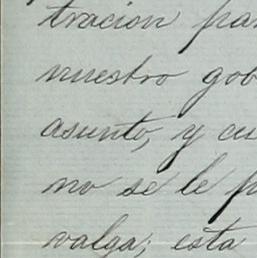 tracion par
nuestro gob
asunto, y cu
no se le p
valga; esta